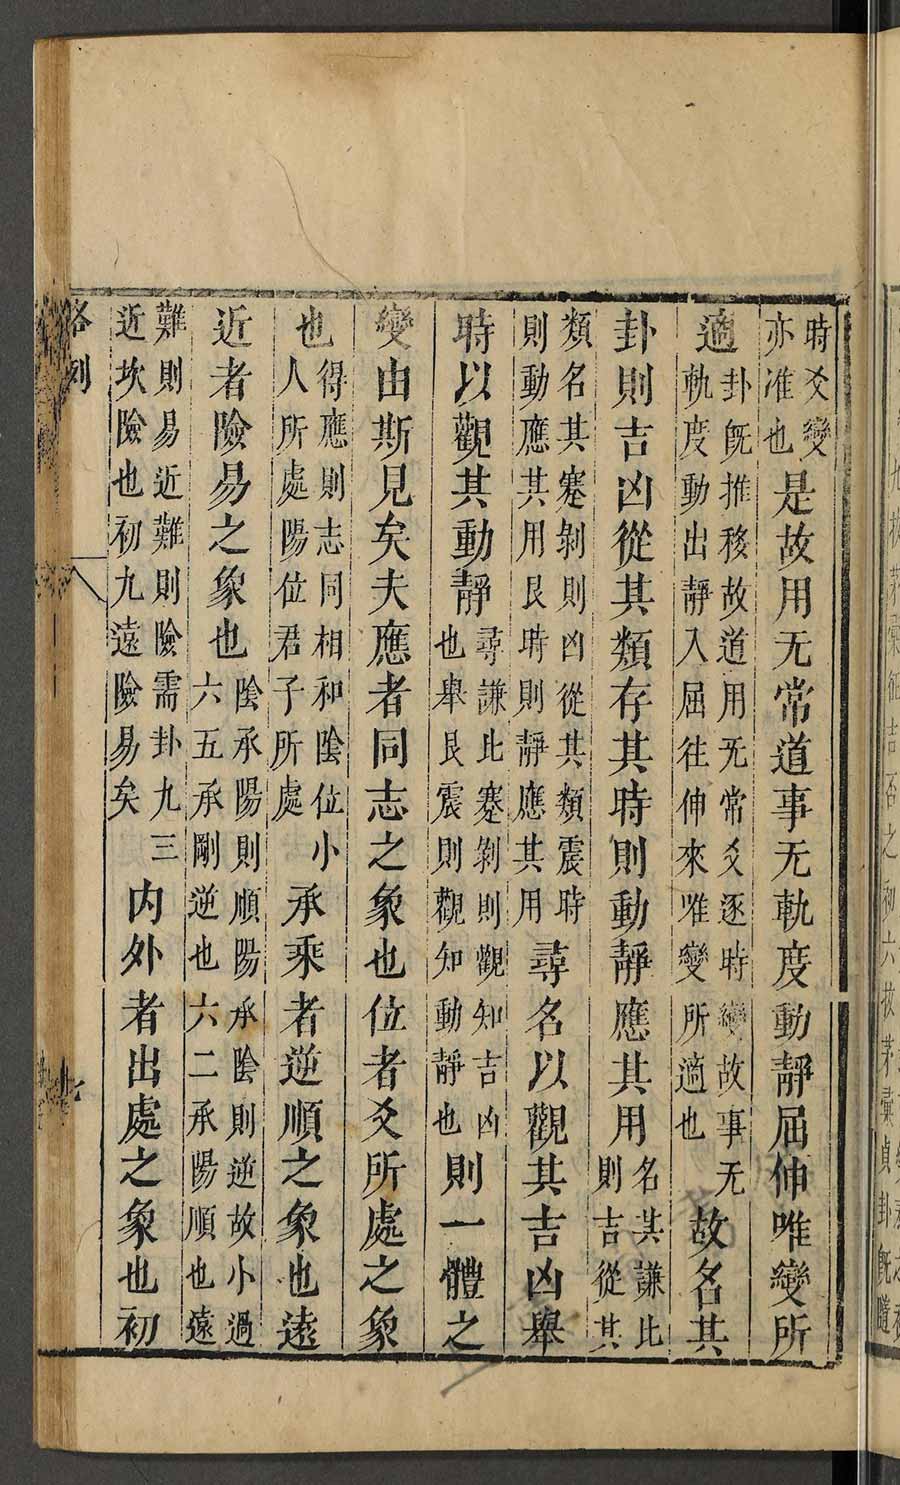 時爻變亦准也是故用无常道事无軌度動靜屈伸唯變所
適卦既推移故道用无常爻逐時變故事无軌度動出靜入屈往伸來唯變所適也故名其
卦則吉凶從其類存其時則動靜應其用名其謙比則吉從其
類名其蹇剝則凶從其類震時則動應其用艮時則靜應其用尋名以觀其吉凶舉
時以觀其動靜尋謙比蹇剝則觀知吉凶也舉艮震則觀知動靜也則一體之
變由斯見矣夫應者同志之象也位者爻所處之象
也得應則志同相和陰位小人所處陽位君子所處承乘者逆順之象也遠
近者險易之象也陰承陽則順陽承陰則逆故小過六五承剛逆也六二承陽順也遠
難則易近難則險需卦九三近坎險也初九遠險易矣内外者出處之象也初